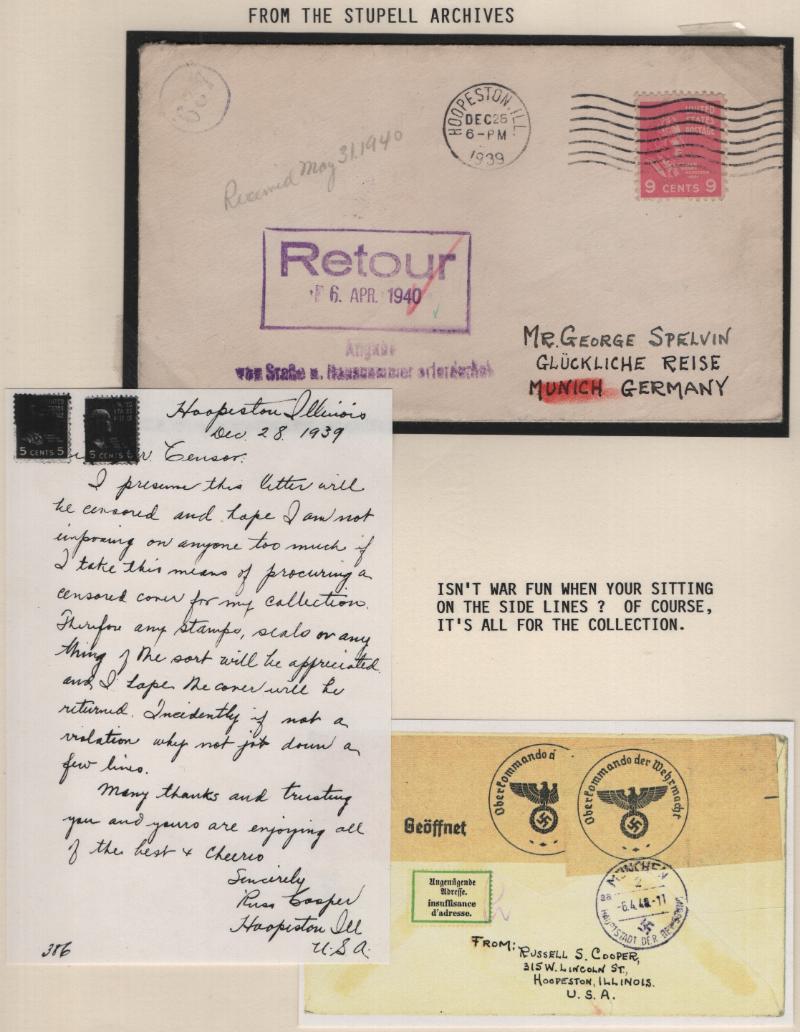 FROM THE STUPELL ARCHIVES
HOOPESTON, ILL.
DEC 28
6-PM
1939
UNITED
STATES
POSTAGE
9 CENTS 9
Received May 31, 1940
Retour
6. APR. 1940
Angabe
von Straße u. Hausnummer erforderlich
MR. GEORGE SPELVIN
GLÜCKLICHE REISE
MUNICH GERMANY
5 CENTS 5
5 CENTS 5
Hoopeston Illinois
Dec. 28. 1939
Censor.
I presume this letter will
be censored and hope I am not
imposing on anyone too much if
I take this means of procuring a
censored cover for my collection.
Therefore any stamps, seals or any
thing of the sort will be appreciated
and I hope the cover will be
returned. Incidently if not a
violation why not jot down a
few lines.
Many thanks and trusting
you and yours are enjoying all
of the best & Cheerio
Sincerely
Russ Cooper
Hoopeston Ill
U.S.A.
386
ISN'T WAR FUN WHEN YOUR SITTING
ON THE SIDE LINES ? OF COURSE,
IT'S ALL FOR THE COLLECTION.
Geöffnet
Oberkommando d
Oberkommando der Wehrmacht
Ungenügende
Adresse.
insuffisance
d'adresse.
MÜNCHEN
2
HAUPTSTADT DER BEWEGUNG
FROM: RUSSELL S. COOPER,
315 W. LINCOLN ST,
HOOPESTON, ILLINOIS.
U. S. A.